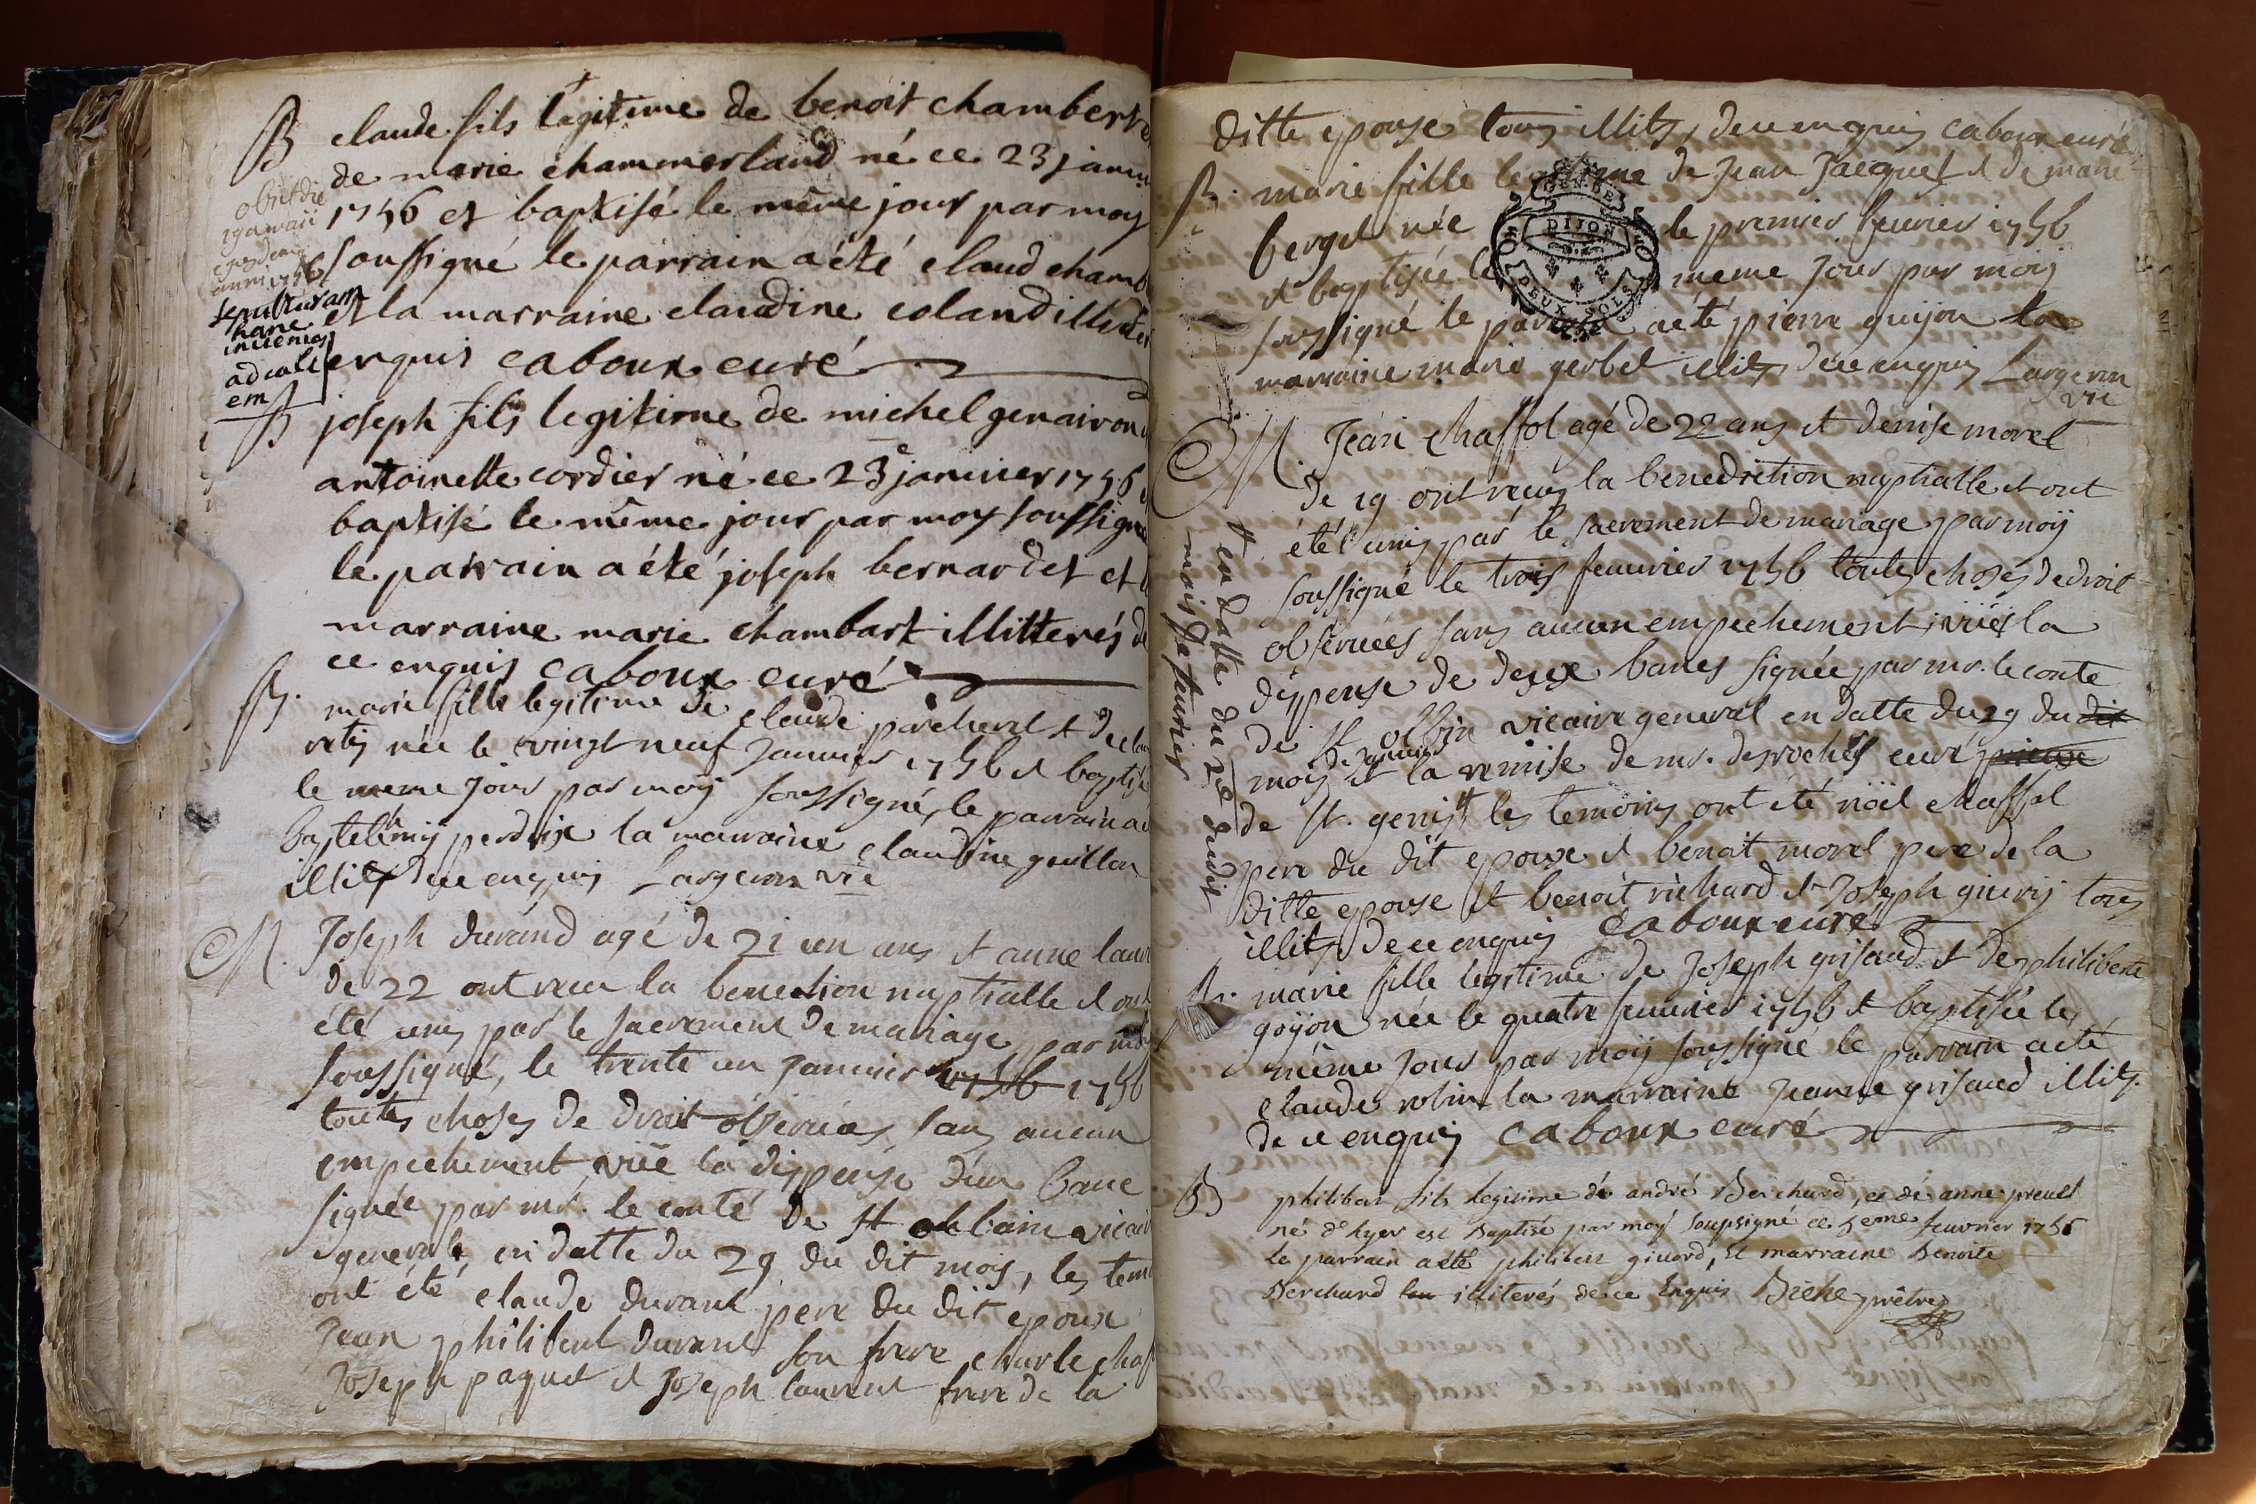 B claude fils legitime de benoit chambert
de marie chammerland né ce 23 janvi
1756 et baptisé le même jour par moy
soussigné le parrain a été claud chamb
et la marraine claudine coland illit
enquis caboux curé
obiit die
29 januarii
ejusdem
anni 1756
sepulturam
hanc
invenies
ad cal
em
B joseph fils legitime de michel genairon
antoinette cordier né ce 23e janvier 1756
baptisé le même jour par moy soussigné
le parrain a été joseph bernardet et
marraine marie chambart illitterés de
ce enquis caboux curé
B. marie fille legitime de claude parcheret et de
née le vingt neuf janvier 1756 et baptisé
le meme jour par moij soussigné, le parrain a
bartelémij perdrix la marraine claudine guillon
illits de ce enquis Largeron vic
M. Joseph durand agé de 21 un ans et anne laur
de 22 ont recu la benediction nuptialle et ont
été unis par le sacrement de mariage par
soussigné, le trente un janvier 1756 1756
toutes choses de droit observées sans aucun
empechement vüe la dispense d'un banc
signée par mr. le conté de st albain vicair
general, en datte du 29 du dit mois, les tem
ont été claude durant pere du dit époux
Jean philibert durant son frere charle chaf
Joseph paquet et joseph laurent frere de la
ditte epouse tous illits, de ce enquis caboux curé
B. marie fille legitime de Jean Jacquet et de marie
berget née le premier fevrier 1756
et baptisée le meme jour par moij
soussigné le parrain a été pierre guijon la
marraine marie gerbet illits de ce enquis Largeron
vic
GEN. DE
DIJON
DEUX SOLS
M. Jean chaffol agé de 22 ans et denise morel
de 19 ont reçu la benediction nuptialle et ont
été unis par le sacrement de mariage par moij
soussigné le trois feuvrier 1756 toutes choses de droit
observées sans aucun empechement, vües la
dispense de deux bancs signée par mr. le conte
de st albin vicaire general en datte du 29 du dit
mois de janvier et la remise de mr. desroches curé
de st. genis les temoins ont été noël chaffol
pere du dit epoux et benoit morel pere de la
ditte epouse et benoit richard et Joseph givrij tous
illits de ce enquis caboux curé
en datte du 2e dudit
mois de feuvrier
B. marie fille legitime de Joseph grisaud et de philiberte
goyon née le quatre feuvrier 1756 et baptisée le
même jour par moij soussigné le parrain a été
claude robin la marraine jeanne grisaud illits.
de ce enquis caboux curé
B philibert fils legitime de andré Berchard, et de anne preult
né d'hyer est baptisé par moy soupsigné ce 5eme feuvrier 1756
le parrain a été philibert givord, et marraine Benoite
Berchard illiterés de ce Enquis Biche prêtre